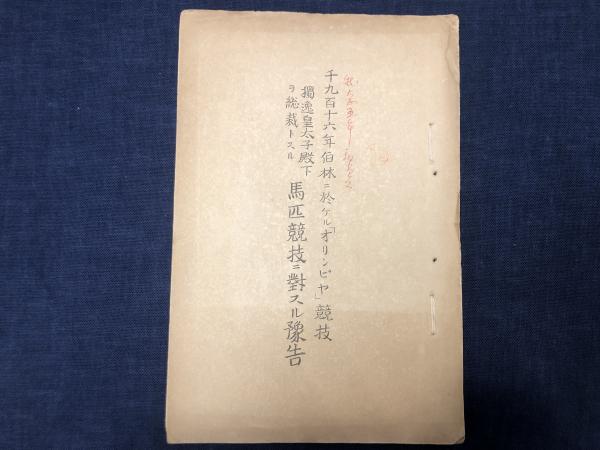 千九百十六年伯林ニ於ケル「オリンピヤ」競技
獨逸皇太子殿下
ヲ総裁トスル
馬匹競技ニ對スル豫告